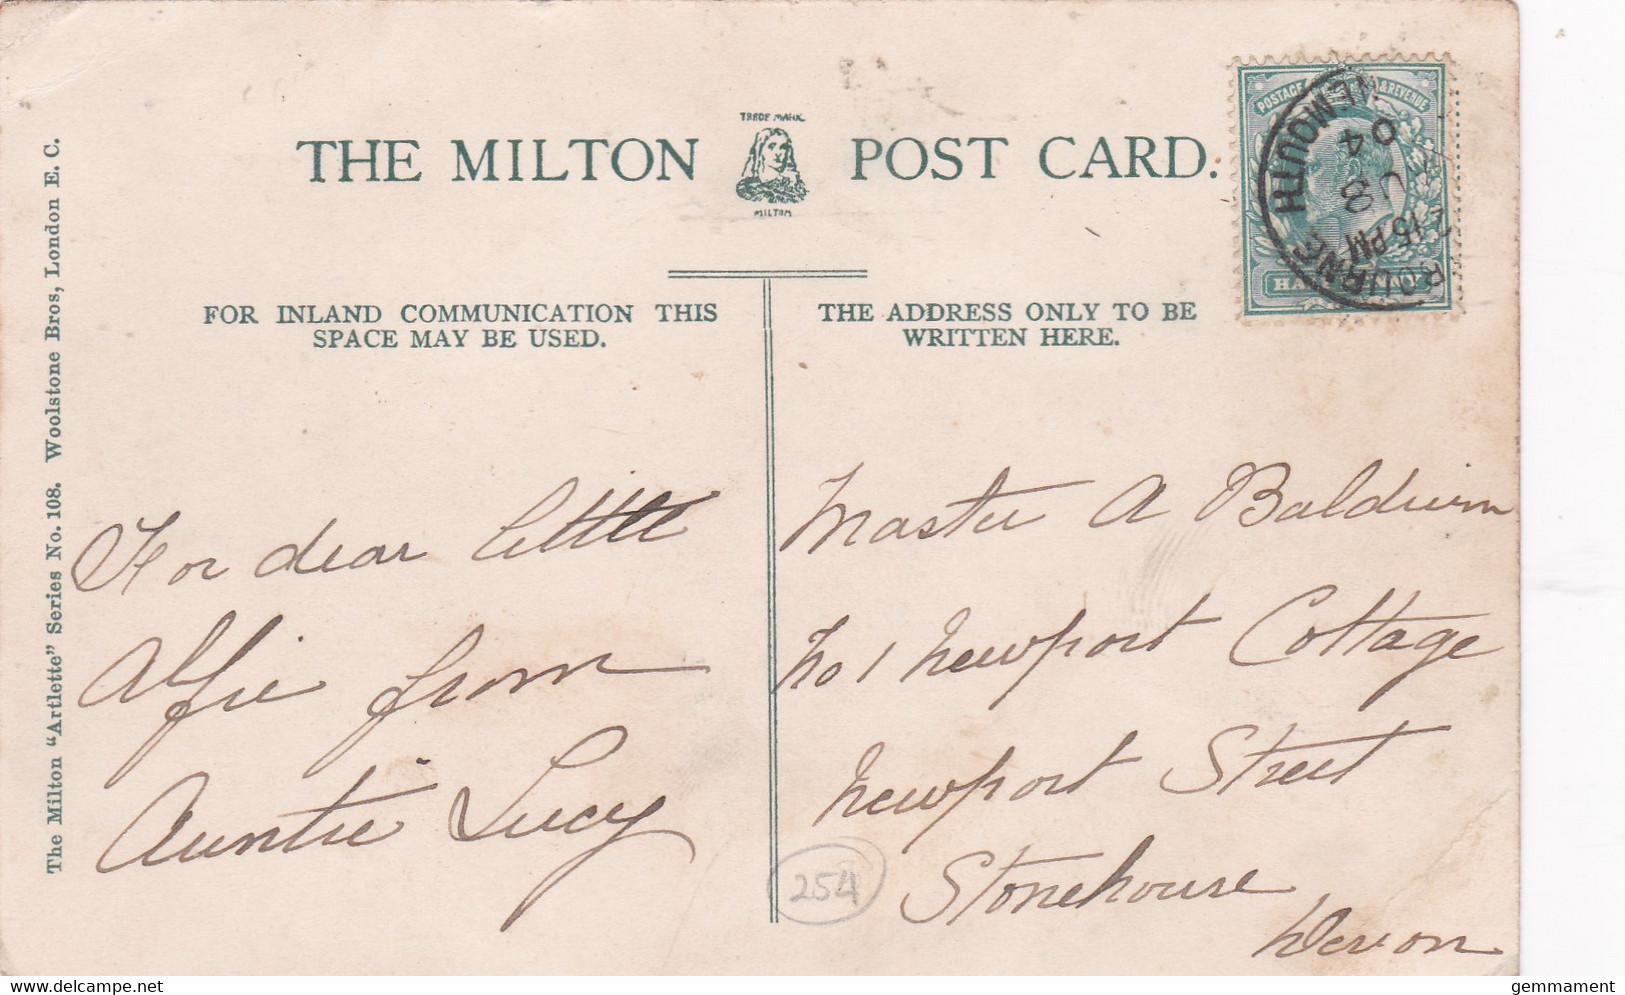 THE MILTON POST CARD.
TRADE MARK
MILTON
FOR INLAND COMMUNICATION THIS
SPACE MAY BE USED.
THE ADDRESS ONLY TO BE
WRITTEN HERE.
The Milton "Artlette" Series No. 108. Woolstone Bros, London E. C.
For dear little
Alfie from
Auntie Lucy
Master A Baldwin
No 1 Newport Cottage
Newport Street
Stonehouse
Devon
254
POSTAGE & REVENUE
BOURNEMOUTH
15 PM
8
04
www.delcampe.net
gemmament